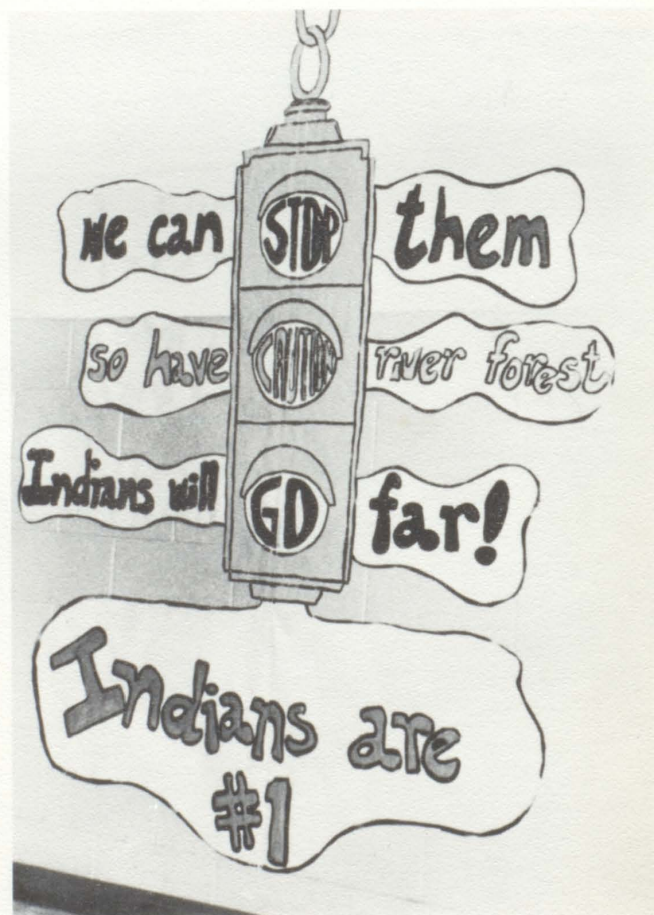 we can STOP them
so have CAUTION river forest
Indians will GO far!
Indians are
#1